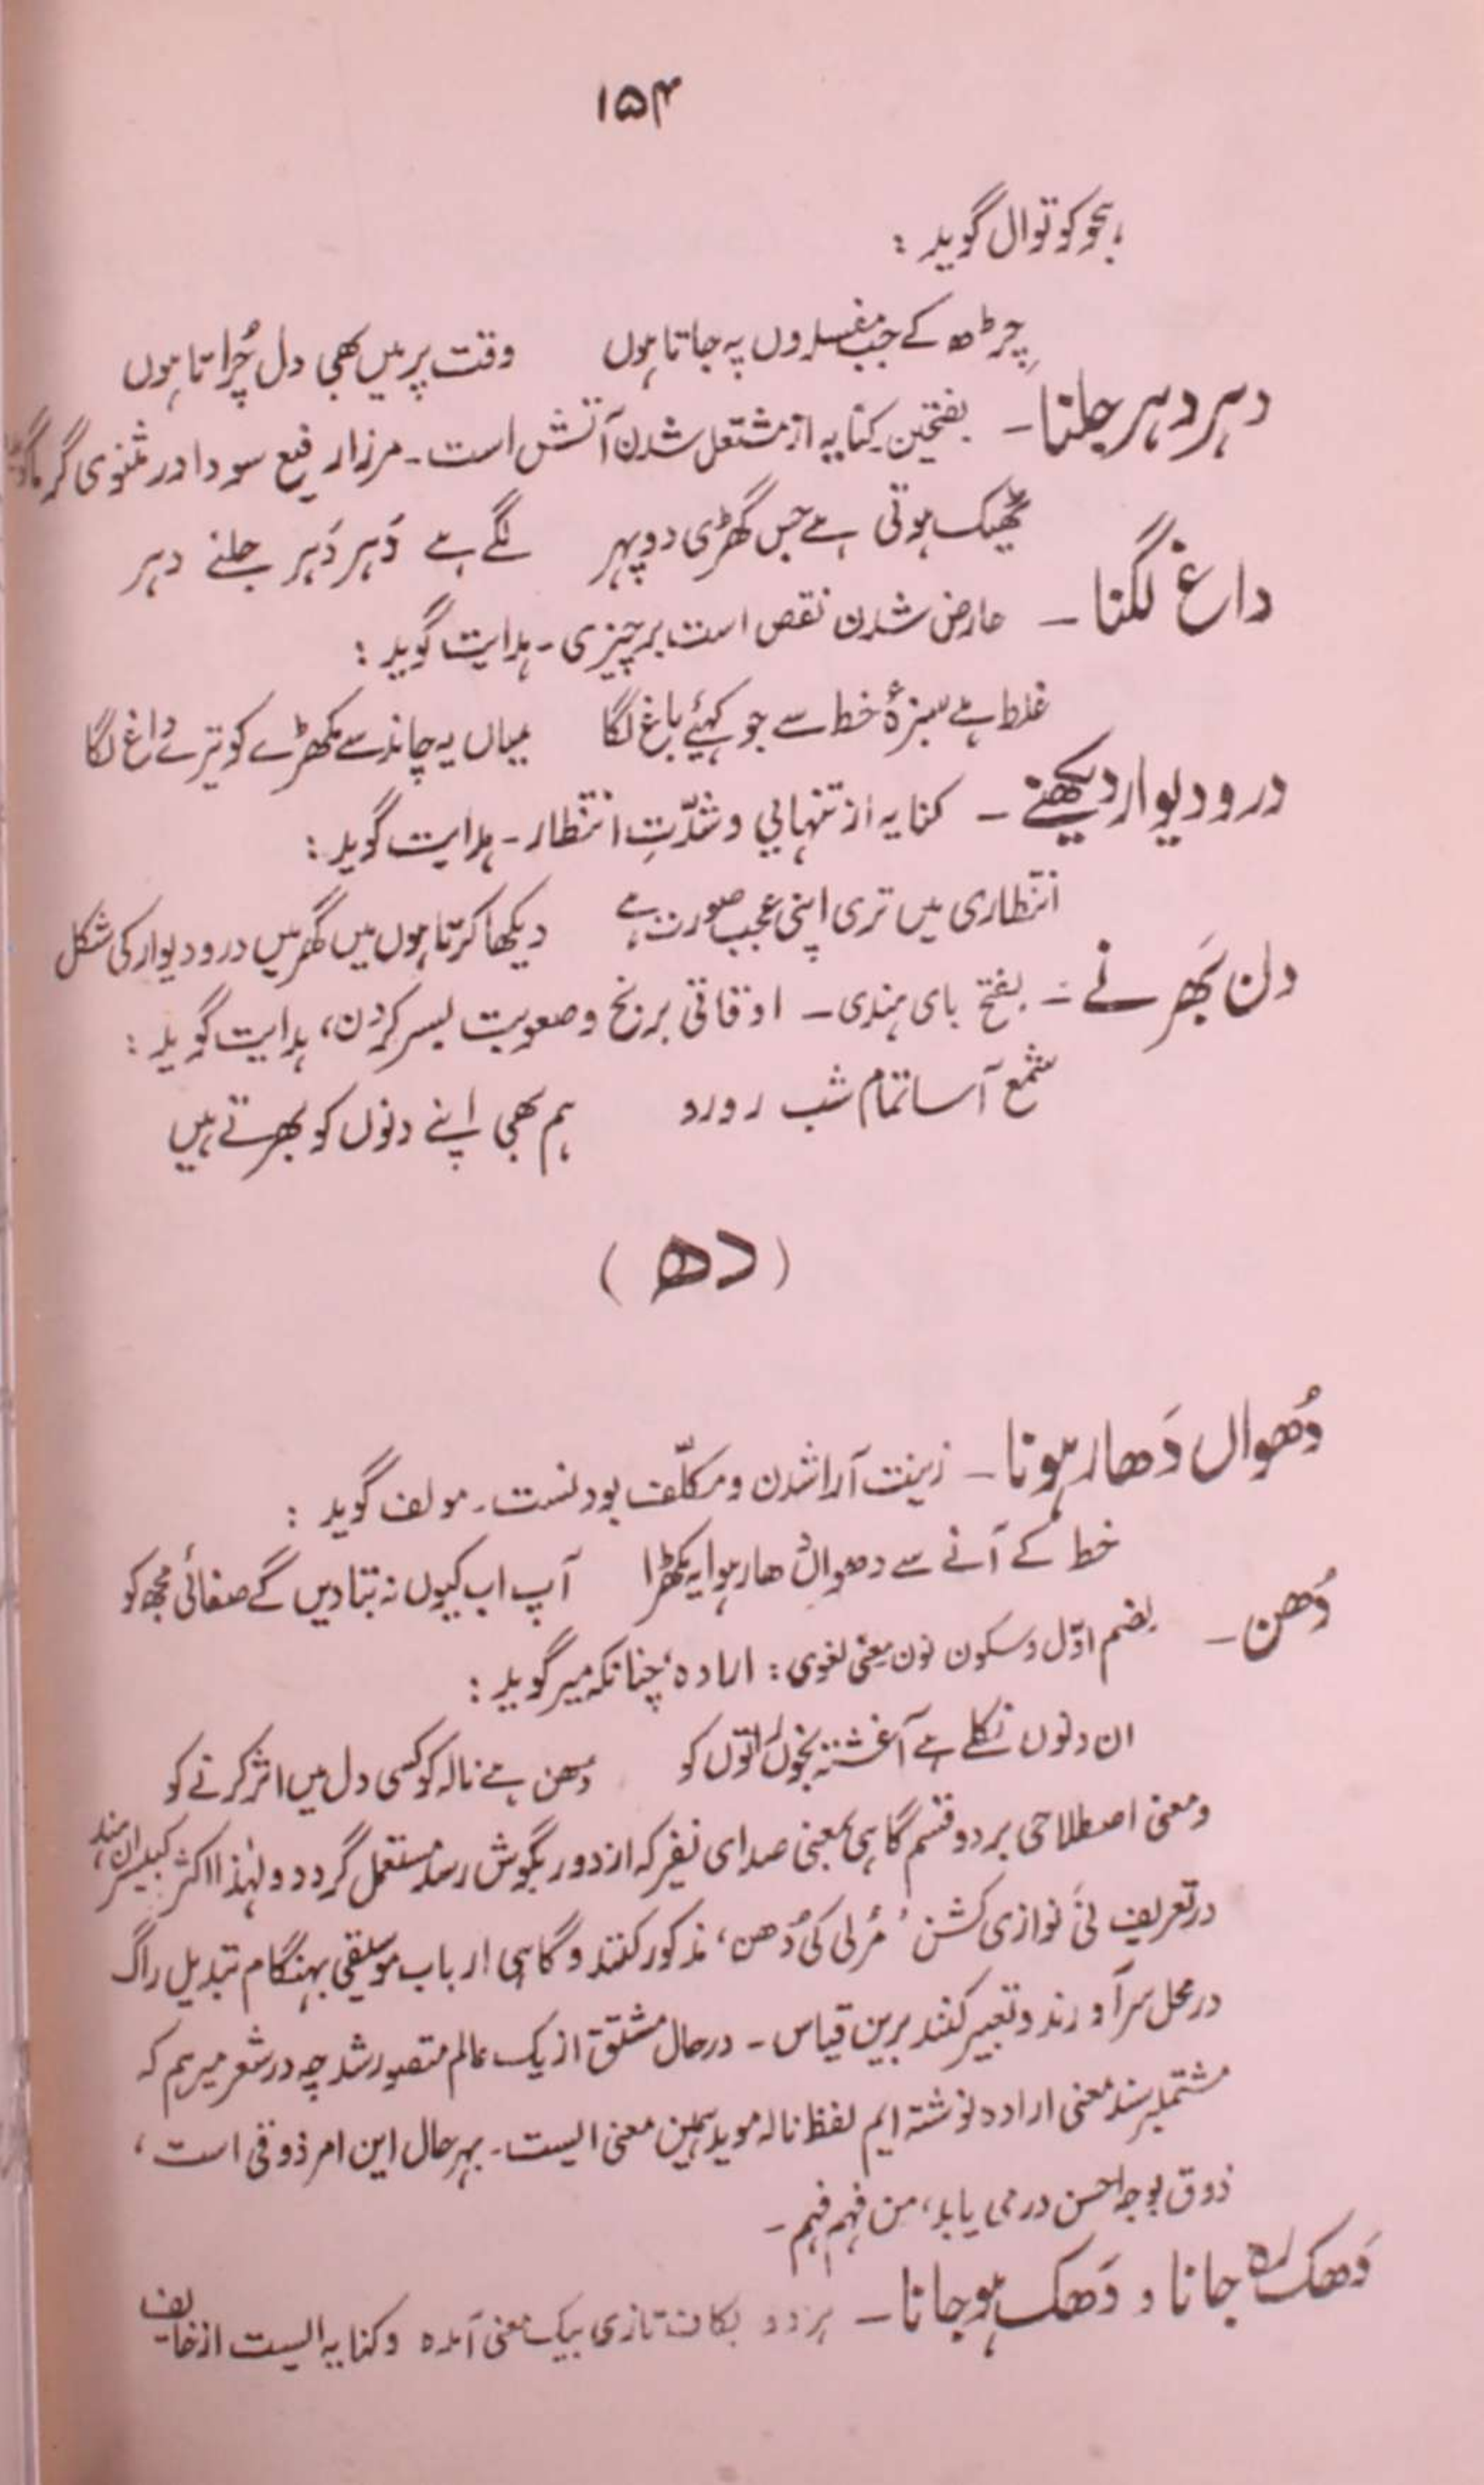 ۱۵۴
بہجو کوتوال گوید :
چڑھ کے جب مفسدوں پہ جاتا ہوں وقت پر میں بھی دل چُراتا ہوں
دہر دہر جلنا ۔ بفتحین کنایہ از مشتعل شدن آتش است ۔ مرزا رفیع سودا در مثنوی گرما
ٹھیک ہوتی ہے جس گھڑی دوپہر لگے ہے دَہر دَہر جلنے دہر
داغ لگنا ۔ عارض شدن نقص است بر چیزی ۔ ہدایت گوید :
غلط ہے سبزۂ خط سے جو کہئے باغ لگا میاں یہ چاند سے مکھڑے کو تیرے داغ لگا
در و دیوار دیکھنے ۔ کنایہ از تنہایی و شدّتِ انتظار ۔ ہدایت گوید :
انتظاری میں تری اپنی عجب صورت ہے دیکھا کرتا ہوں میں گھر میں در و دیوار کی شکل
دن بَھرنے ۔ بفتح بای ہندی ۔ اوقاتی برنج و صعوبت بسر کردن، ہدایت گوید :
شمع آسا تمام شب رو رو ہم بھی اپنے دنوں کو بھرتے ہیں
( دھ )
دُھواں دَھار ہونا ۔ زینت آرا شدن و مکلّف بودنست ۔ مولف گوید :
خط کے آنے سے دھواں دھار ہوا یہ مکھڑا آپ اب کیوں نہ بتا دیں گے صفائی مجھ کو
دُھن ۔ بضم اوّل و سکون نون معنی لغوی : ارادہ، چنانکہ میر گوید :
ان دنوں نکلے ہے آغشتہ بخوں راتوں کو دھن ہے نالہ کو کسی دل میں اثر کرنے کو
و معنی اصطلاحی بر دو قسم گاہی بمعنی صدای نفیر کہ از دور بگوش رسد مستعمل گردد و لہٰذا اکثر کبیسران ہند
در تعریف نَی نوازی کشن ’مُرلی کی دُھن‘ مذکور کنند و گاہی ارباب موسیقی بہنگام تبدیل راگ
در محل سر آورند و تعبیر کنند برین قیاس ۔ در حال مشتق از یک عالم متصور شد چہ در شعر میر ہم کہ
مشتملبر سند معنی ارادہ نوشتہ ایم لفظ نالہ موید ہمین معنی ایست ۔ بہر حال این امر ذوقی است ،
ذوق بوجہ احسن در می یابد، من فہم فہم ۔
دَھک رہ جانا و دَھک ہو جانا ۔ ہر دو بکاف تازی بیک معنی آمدہ و کنایہ ایست از خایف